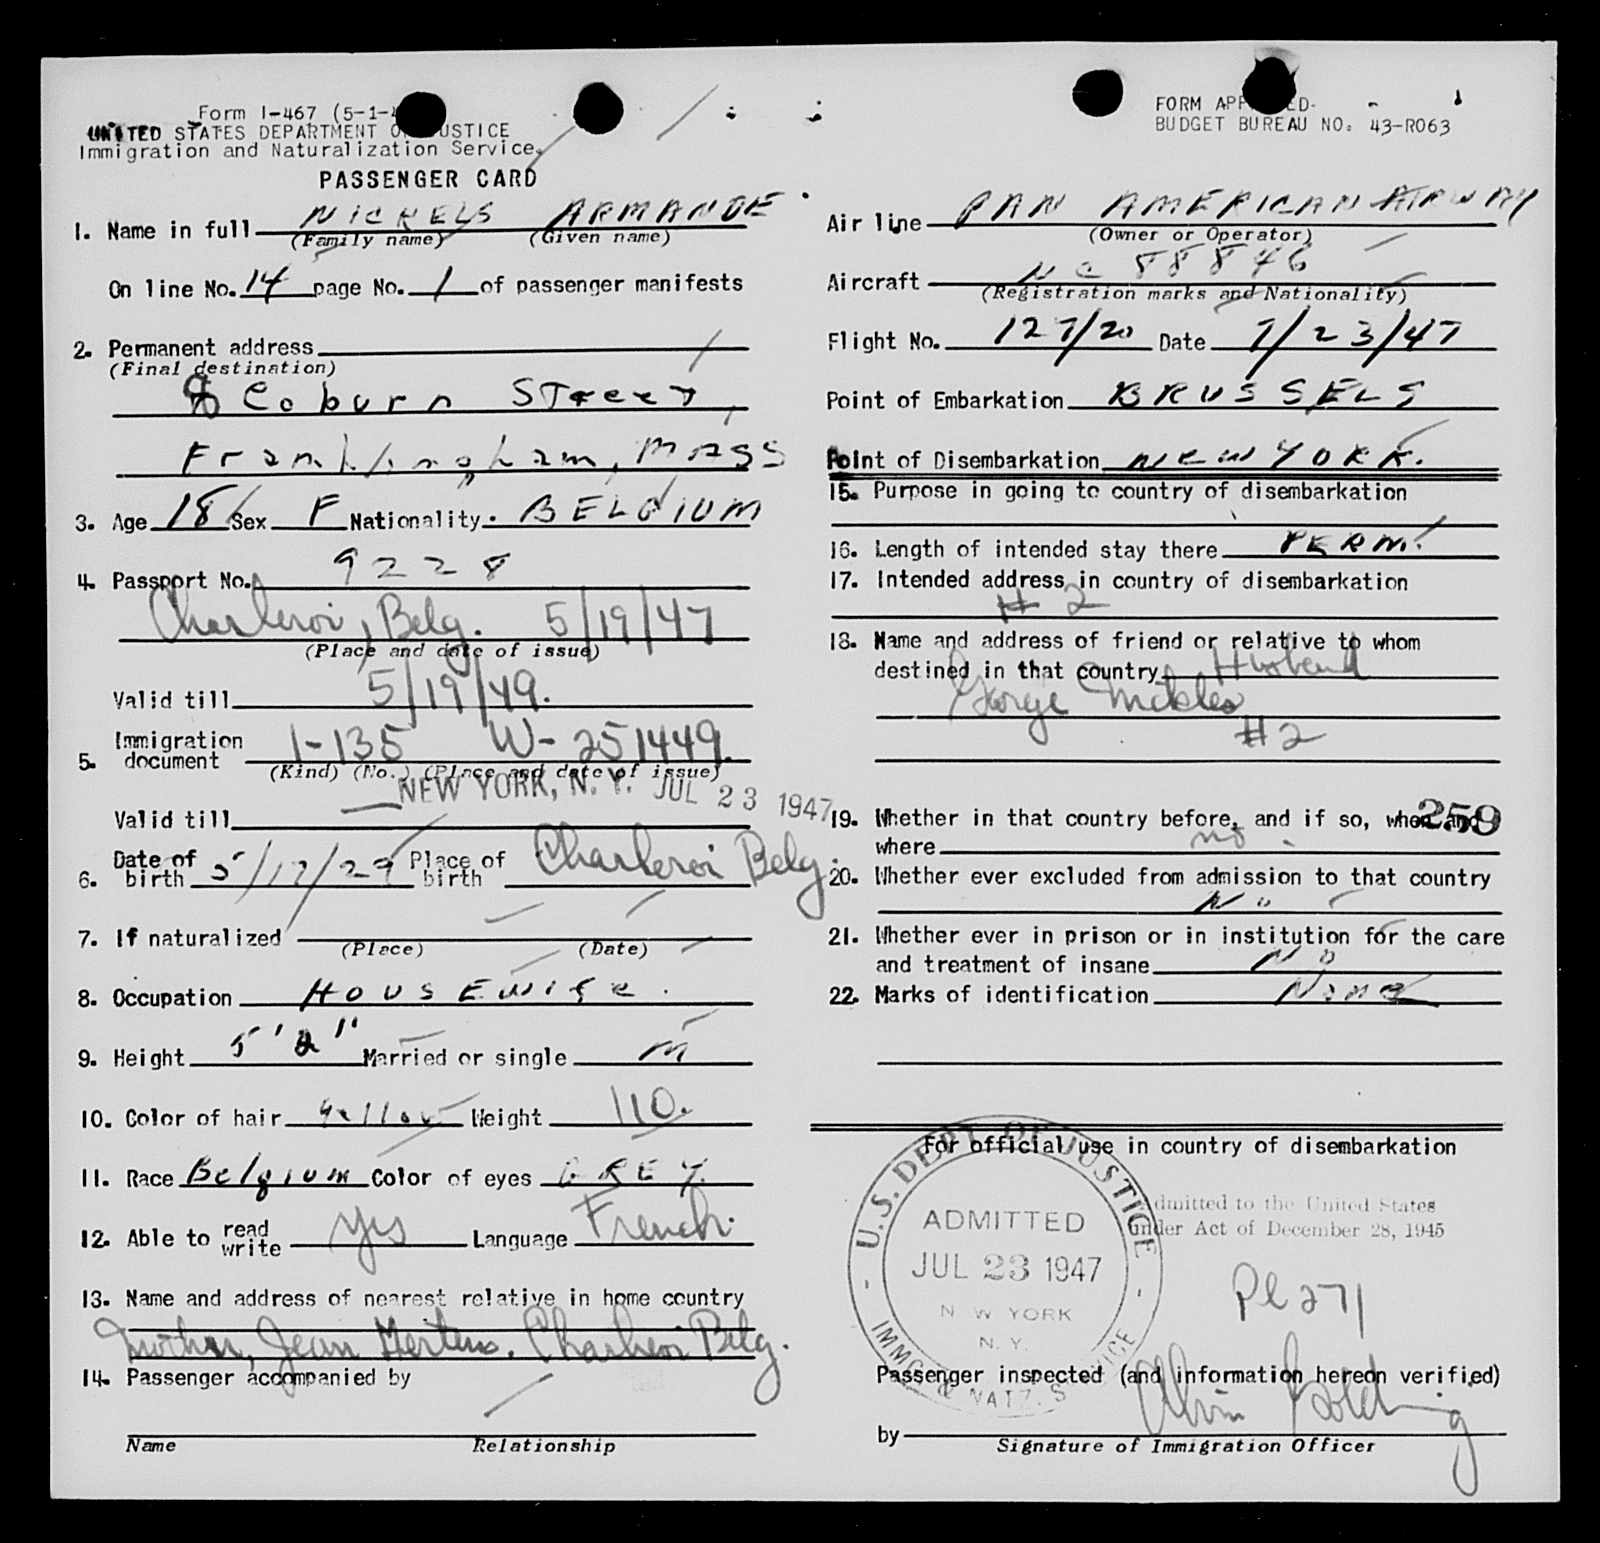 Form I-467 (5-1-
UNITED STATES DEPARTMENT OF JUSTICE
Immigration and Naturalization Service.
PASSENGER CARD
FORM APPROVED.
BUDGET BUREAU NO. 43-R063
1. Name in full NICKELS ARMANDE
(Family name) (Given name)
On line No. 14 page No. 1 of passenger manifests
2. Permanent address
(Final destination)
Coburn Street,
MASS
3. Age 18 Sex F Nationality. BELGIUM
4. Passport No. 9228
Charleroi, Belg. 5/19/47
(Place and date of issue)
Valid till 5/19/49.
5. Immigration document I-135 W-251449.
(Kind) (No.) (Place and date of issue)
NEW YORK, N. Y. JUL 23 1947
Valid till
6. Date of birth 5/17/29 Place of birth Charleroi Belg.
7. If naturalized
(Place) (Date)
8. Occupation HOUSEWIFE.
9. Height 5'2" Married or single M
10. Color of hair Yellow Weight 110.
11. Race Belgium Color of eyes GREY.
12. Able to read write yes Language French.
13. Name and address of nearest relative in home country
Mother, Jean Mertens. Charleroi Belg.
14. Passenger accompanied by
Name Relationship
Air line PAN AMERICAN AIRWAY
(Owner or Operator)
Aircraft NC 88846
(Registration marks and Nationality)
Flight No. 127/20 Date 7/23/47
Point of Embarkation BRUSSELS
Point of Disembarkation NEW YORK.
15. Purpose in going to country of disembarkation
16. Length of intended stay there PERM.
17. Intended address in country of disembarkation
#2
18. Name and address of friend or relative to whom
destined in that country Husband
George Nickles
#2
19. Whether in that country before, and if so, when and
259
where no.
20. Whether ever excluded from admission to that country
No
21. Whether ever in prison or in institution for the care
and treatment of insane No
22. Marks of identification None
For official use in country of disembarkation
U.S. DEPT. OF JUSTICE
ADMITTED
JUL 23 1947
N W YORK
N. Y.
IMMG. & NATZ. SERVICE
dmitted to the United States
under Act of December 28, 1945
PL 271
Passenger inspected (and information hereon verified)
by Alvin Golding
Signature of Immigration Officer